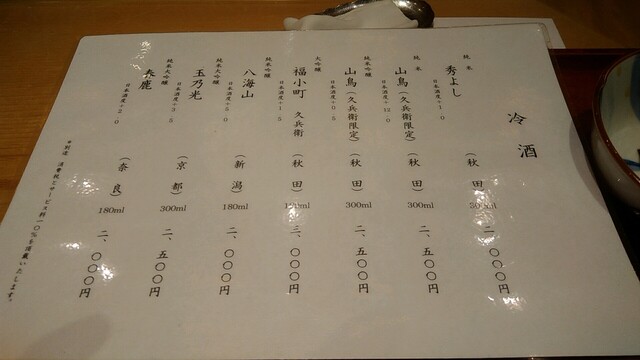 冷酒
純米
秀よし
日本酒度+1.0
(秋田)
300ml
二、〇〇〇円
純米
山鳥(久兵衛限定)
日本酒度+12.0
(秋田)
300ml
二、五〇〇円
純米吟醸
山鳥(久兵衛限定)
日本酒度+0.5
(秋田)
300ml
二、五〇〇円
大吟醸
福小町 久兵衛
日本酒度+1.5
(秋田)
180ml
三、〇〇〇円
純米吟醸
八海山
日本酒度+5.0
(新潟)
180ml
二、〇〇〇円
純米大吟醸
玉乃光
日本酒度+3.5
(京都)
300ml
二、五〇〇円
純米大吟醸
春鹿
日本酒度+2.0
(奈良)
180ml
二、〇〇〇円
*別途 消費税とサービス料一〇%を頂戴いたします。